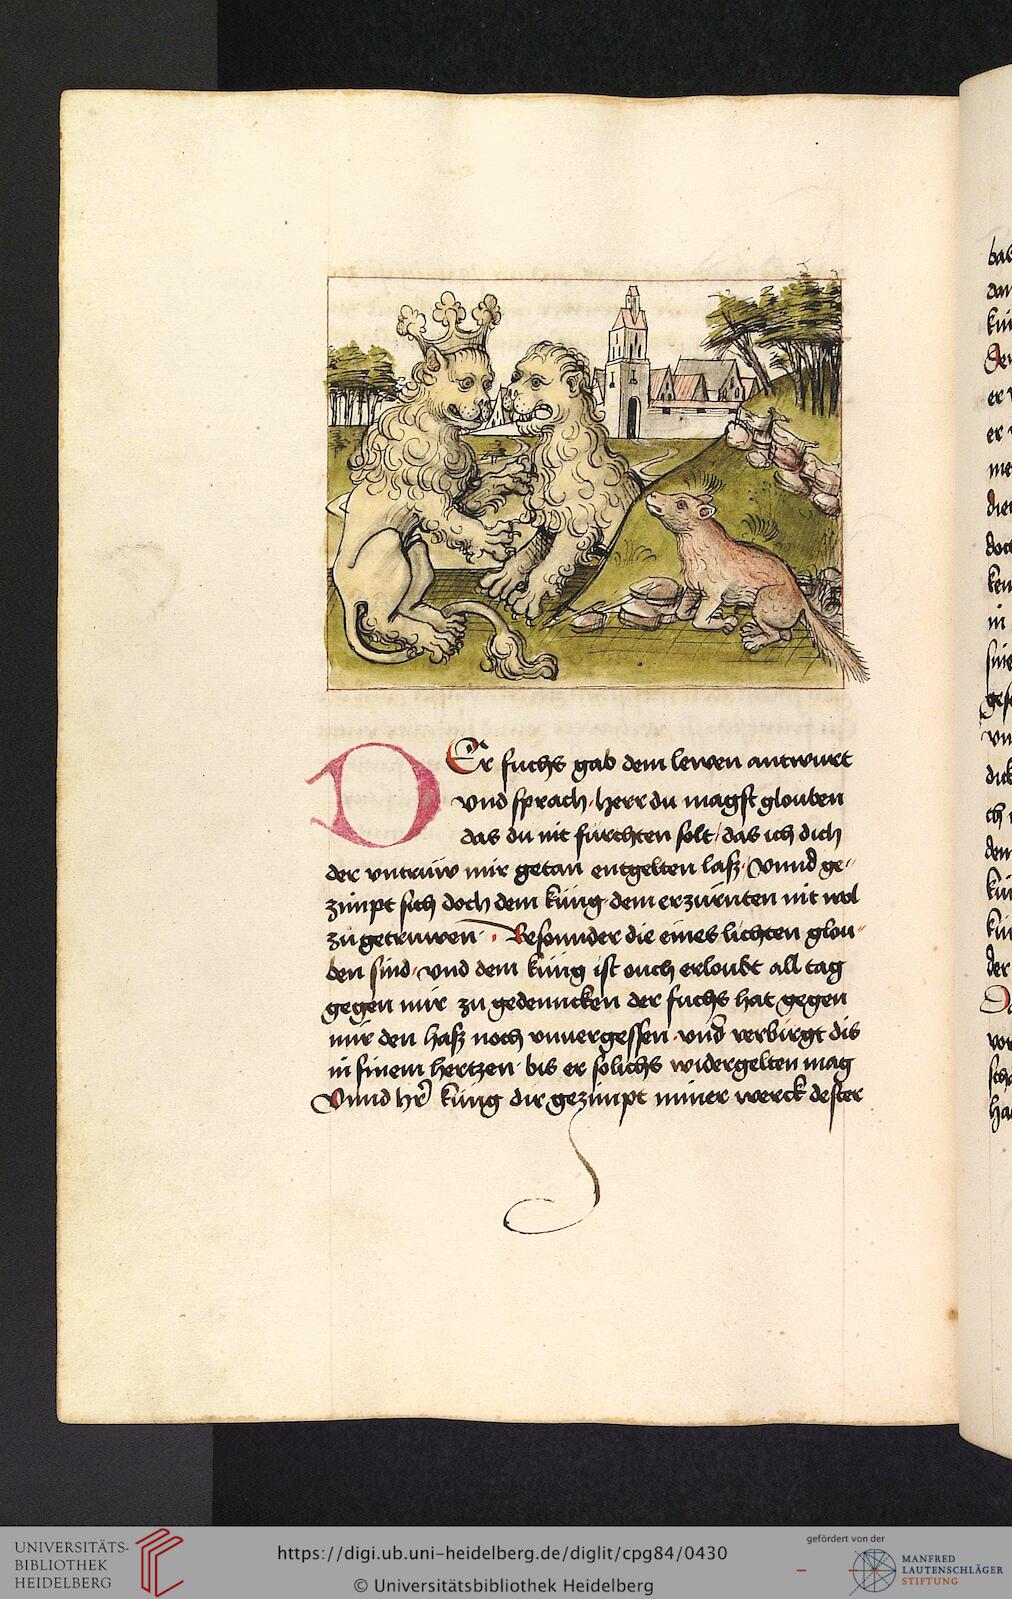 DEr fuchs gab dem lewen antwurt
vnd sprach · herr du magst glouben
das du nit fürchten solt / das ich dich
der vntrüw mir getan entgelten lasz · Vnnd ge〃
zimpt sich doch dem küng dem erzürnten nit wol
zü getruwen · Besonnder die eines lichten glou〃
ben sind · vnd dem küng ist ouch erloubt all tag
gegen mir zu gedenncken der fuchs hat gegen
mir den hasz noch vnuergessen · vnd verbirgt dis
in sinem hertzen · bis er solichs widergelten mag
Vnnd hr̄ küng dir gezimpt miner werck dester
bas
er
er
die
doch
in
vnd
dick
dem
der
vor
UNIVERSITÄTS-
BIBLIOTHEK
HEIDELBERG
https://digi.ub.uni-heidelberg.de/diglit/cpg84/0430
© Universitätsbibliothek Heidelberg
gefördert von der
MANFRED
LAUTENSCHLÄGER
STIFTUNG